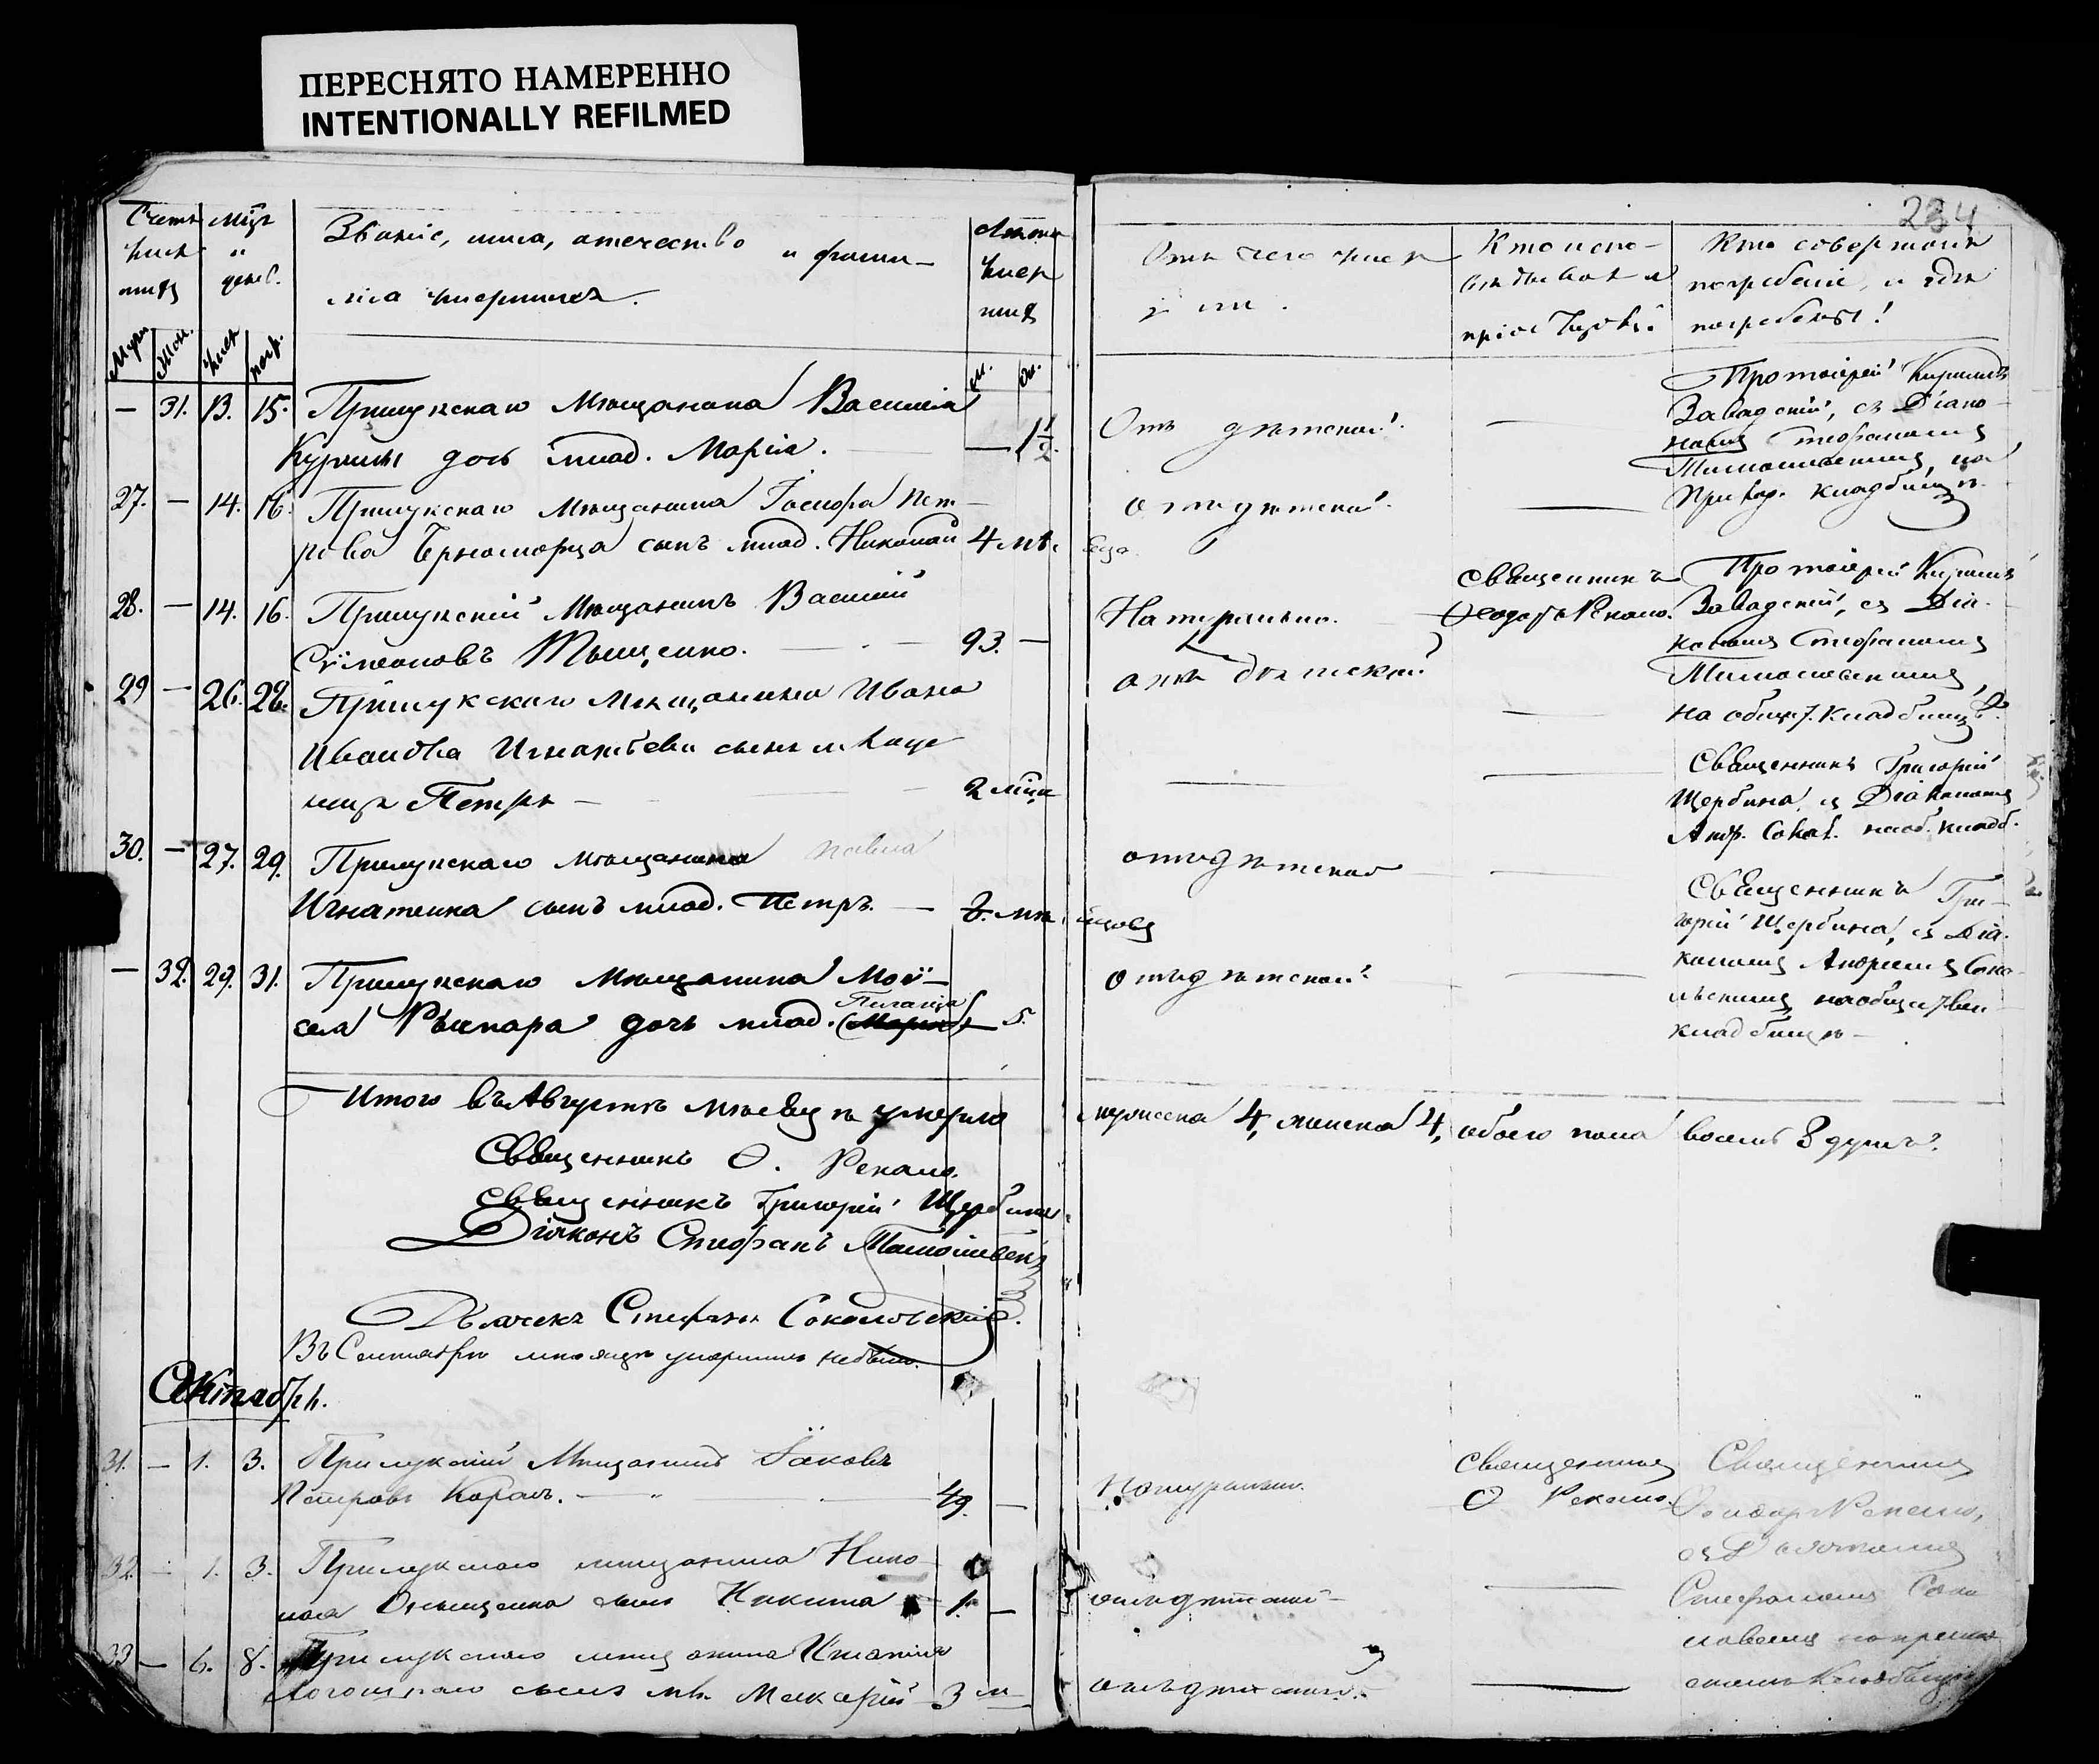 ПЕРЕСНЯТО НАМЕРЕННО
INTENTIONALLY REFILMED
234
Счетъ Мцъ
и
Званіе, имя, отечество и фами-
лія умершихъ.
Лѣта
умер
шихъ
Муж. Жен. умер. погр.
м. ж.
Отъ чего умер
ли.
Кто испо-
вѣдывалъ и
пріобщалъ.
Кто совершалъ
погребеніе, и гдѣ
погребены!
— 31. 13. 15. Прилукскаго Мѣщанина Василія
дочь млад. Марія. — 1½.
Отъ дѣтской. —
Протоіерей Кириллъ
Завадскій, съ Діако-
номъ Стефаномъ
на
кладбищѣ.
27. — 14. 16. Прилукскаго Мѣщанина Іосифа Пет-
рова Черноморца сынъ млад. Николай 4 мѣ.
отъ дѣтской. —
28. — 14. 16. Прилукскій Мѣщанинъ Василій
Сѵмеоновъ Тыщенко. — 93. —
Натурально.
Священникъ
Ѳеодоръ Рекало.
Протоіерей Кириллъ
Завадскій, съ Діа-
кономъ Стефаномъ
на общ. кладбищѣ.
29 — 26. 28. Прилукскаго Мѣщанина Ивана
Иванова Игнатьева сынъ младе
нецъ Петръ — 2 мцъ
отъ дѣтской —
Священникъ Григорій
Щербина съ Діакономъ
Анд. Сокол. на об. кладб.
30. — 27. 29. Прилукскаго мѣщанина Павла
Игнатенка сынъ млад. Петръ. — мѣ
сяцовъ
отъ дѣтской —
Священникъ Гри-
горій Щербина, съ Діа-
кономъ Андреемъ Соко-
льскимъ на обществен
кладбищѣ —
— 32. 29. 31. Прилукскаго Мѣщанина Моѵ-
сея Рыхара дочь млад. (Марія) Пелагія — 5.
отъ дѣтской. —
Итого въ Августѣ мѣсяцѣ умерло мужеска 4, женска 4, обоего пола восемь 8 душъ.
Священникъ Ѳ. Рекало.
Священникъ Григорій Щербина.
Діаконъ Стефанъ
Дьячекъ Стефанъ Соколовскій.
Въ Сентябрѣ мѣсяцѣ умершихъ небыло.
Октябрь.
31. — 1. 3. Прилукскій Мѣщанинъ Іаковъ
Петровъ Коралъ. — 49. —
Натурально.
Священникъ
Ѳ Рекало.
Священникъ
Ѳеодоръ Рекало,
съ Дьячкомъ
Стефаномъ Соко
ловскимъ
кладбищѣ
32 — 1. 3. Прилукскаго мѣщанина Нико
лая Онищенка сынъ Никита 1. —
отъ дѣтской —
33 — 6. 8. Прилукскаго мѣщанина Игнатія
сынъ мл. Макарій 3 м
отъ дѣтской. —